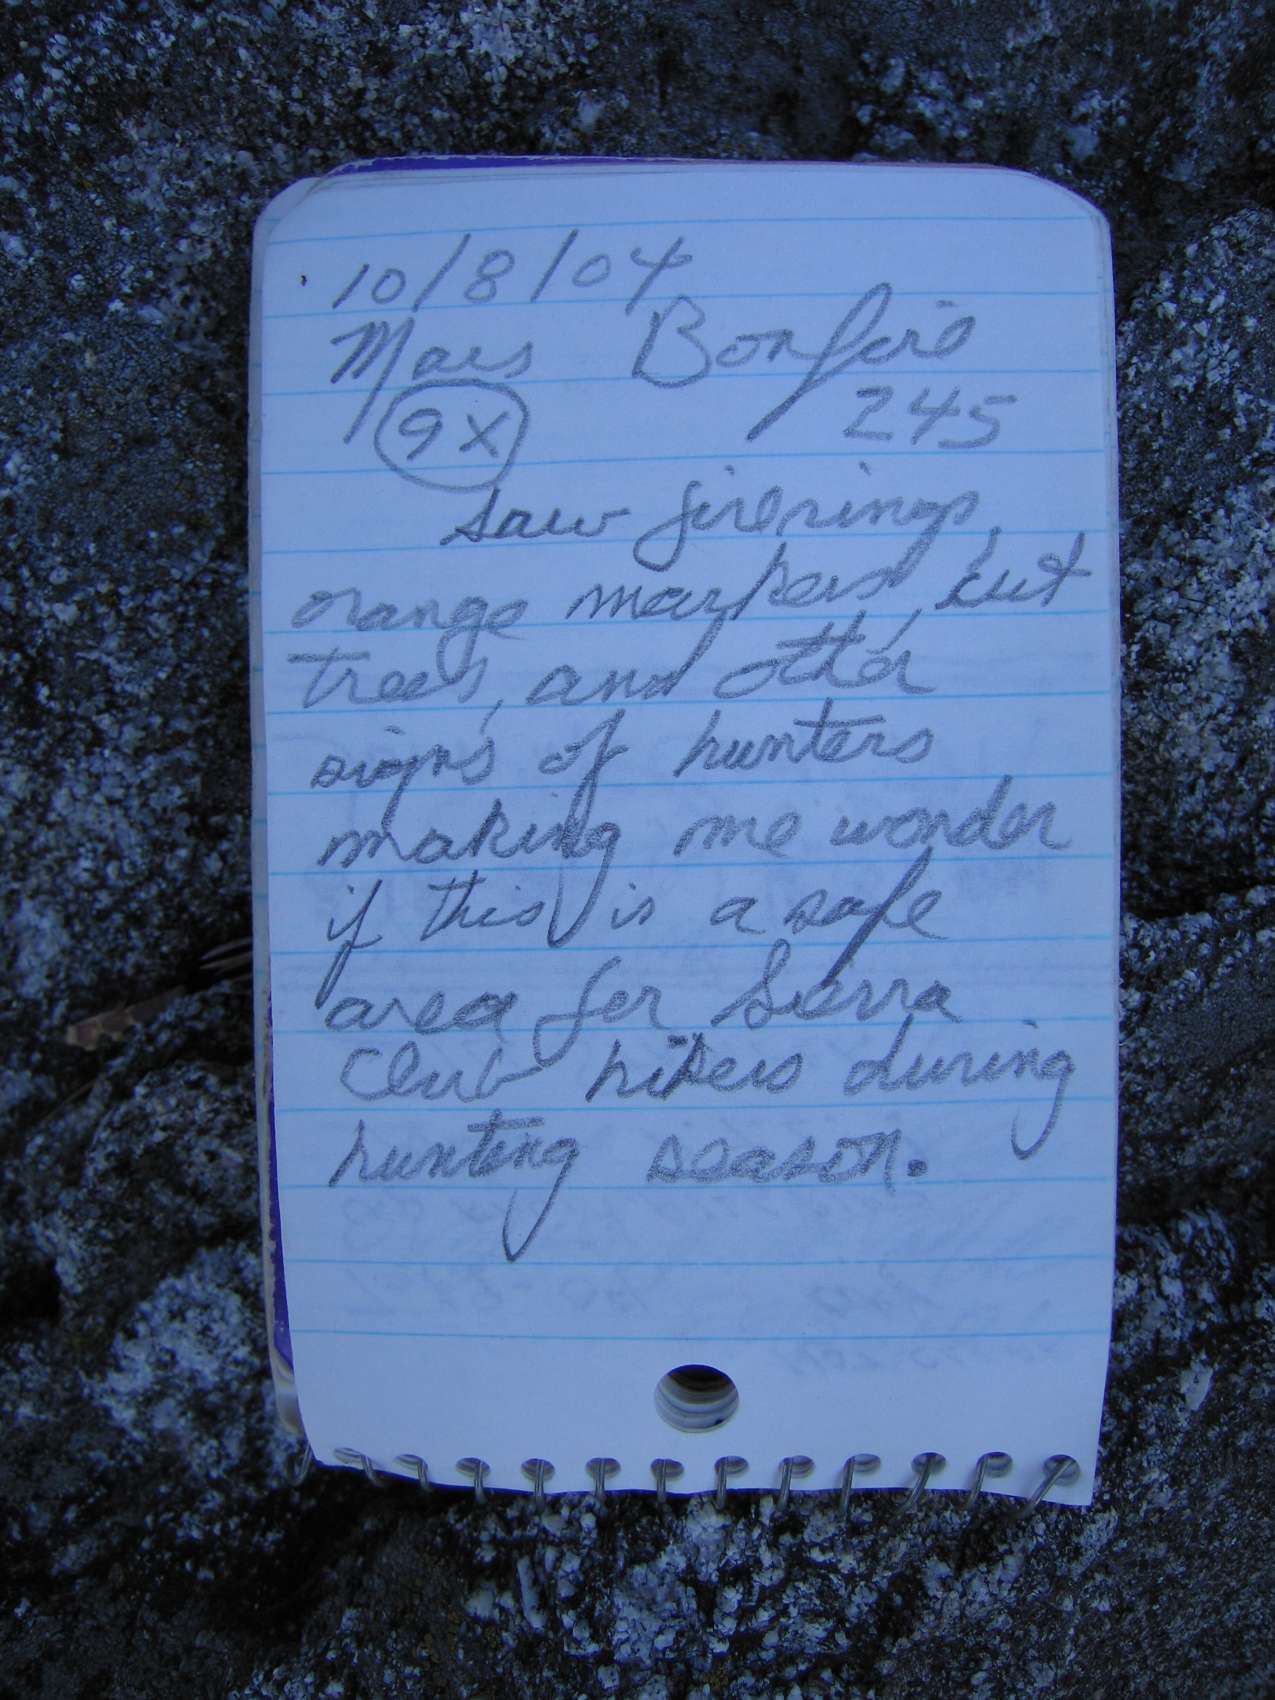 10/8/04
Mars Bonfire
9X 245
Saw firerings,
orange markers, cut
trees, and other
signs of hunters
making me wonder
if this is a safe
area for Sierra
Club hikers during
hunting season.